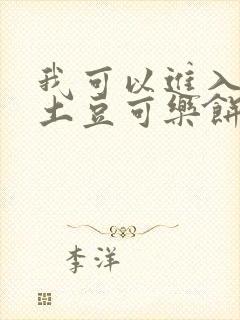 我可以進入
土豆可樂餅
李洋